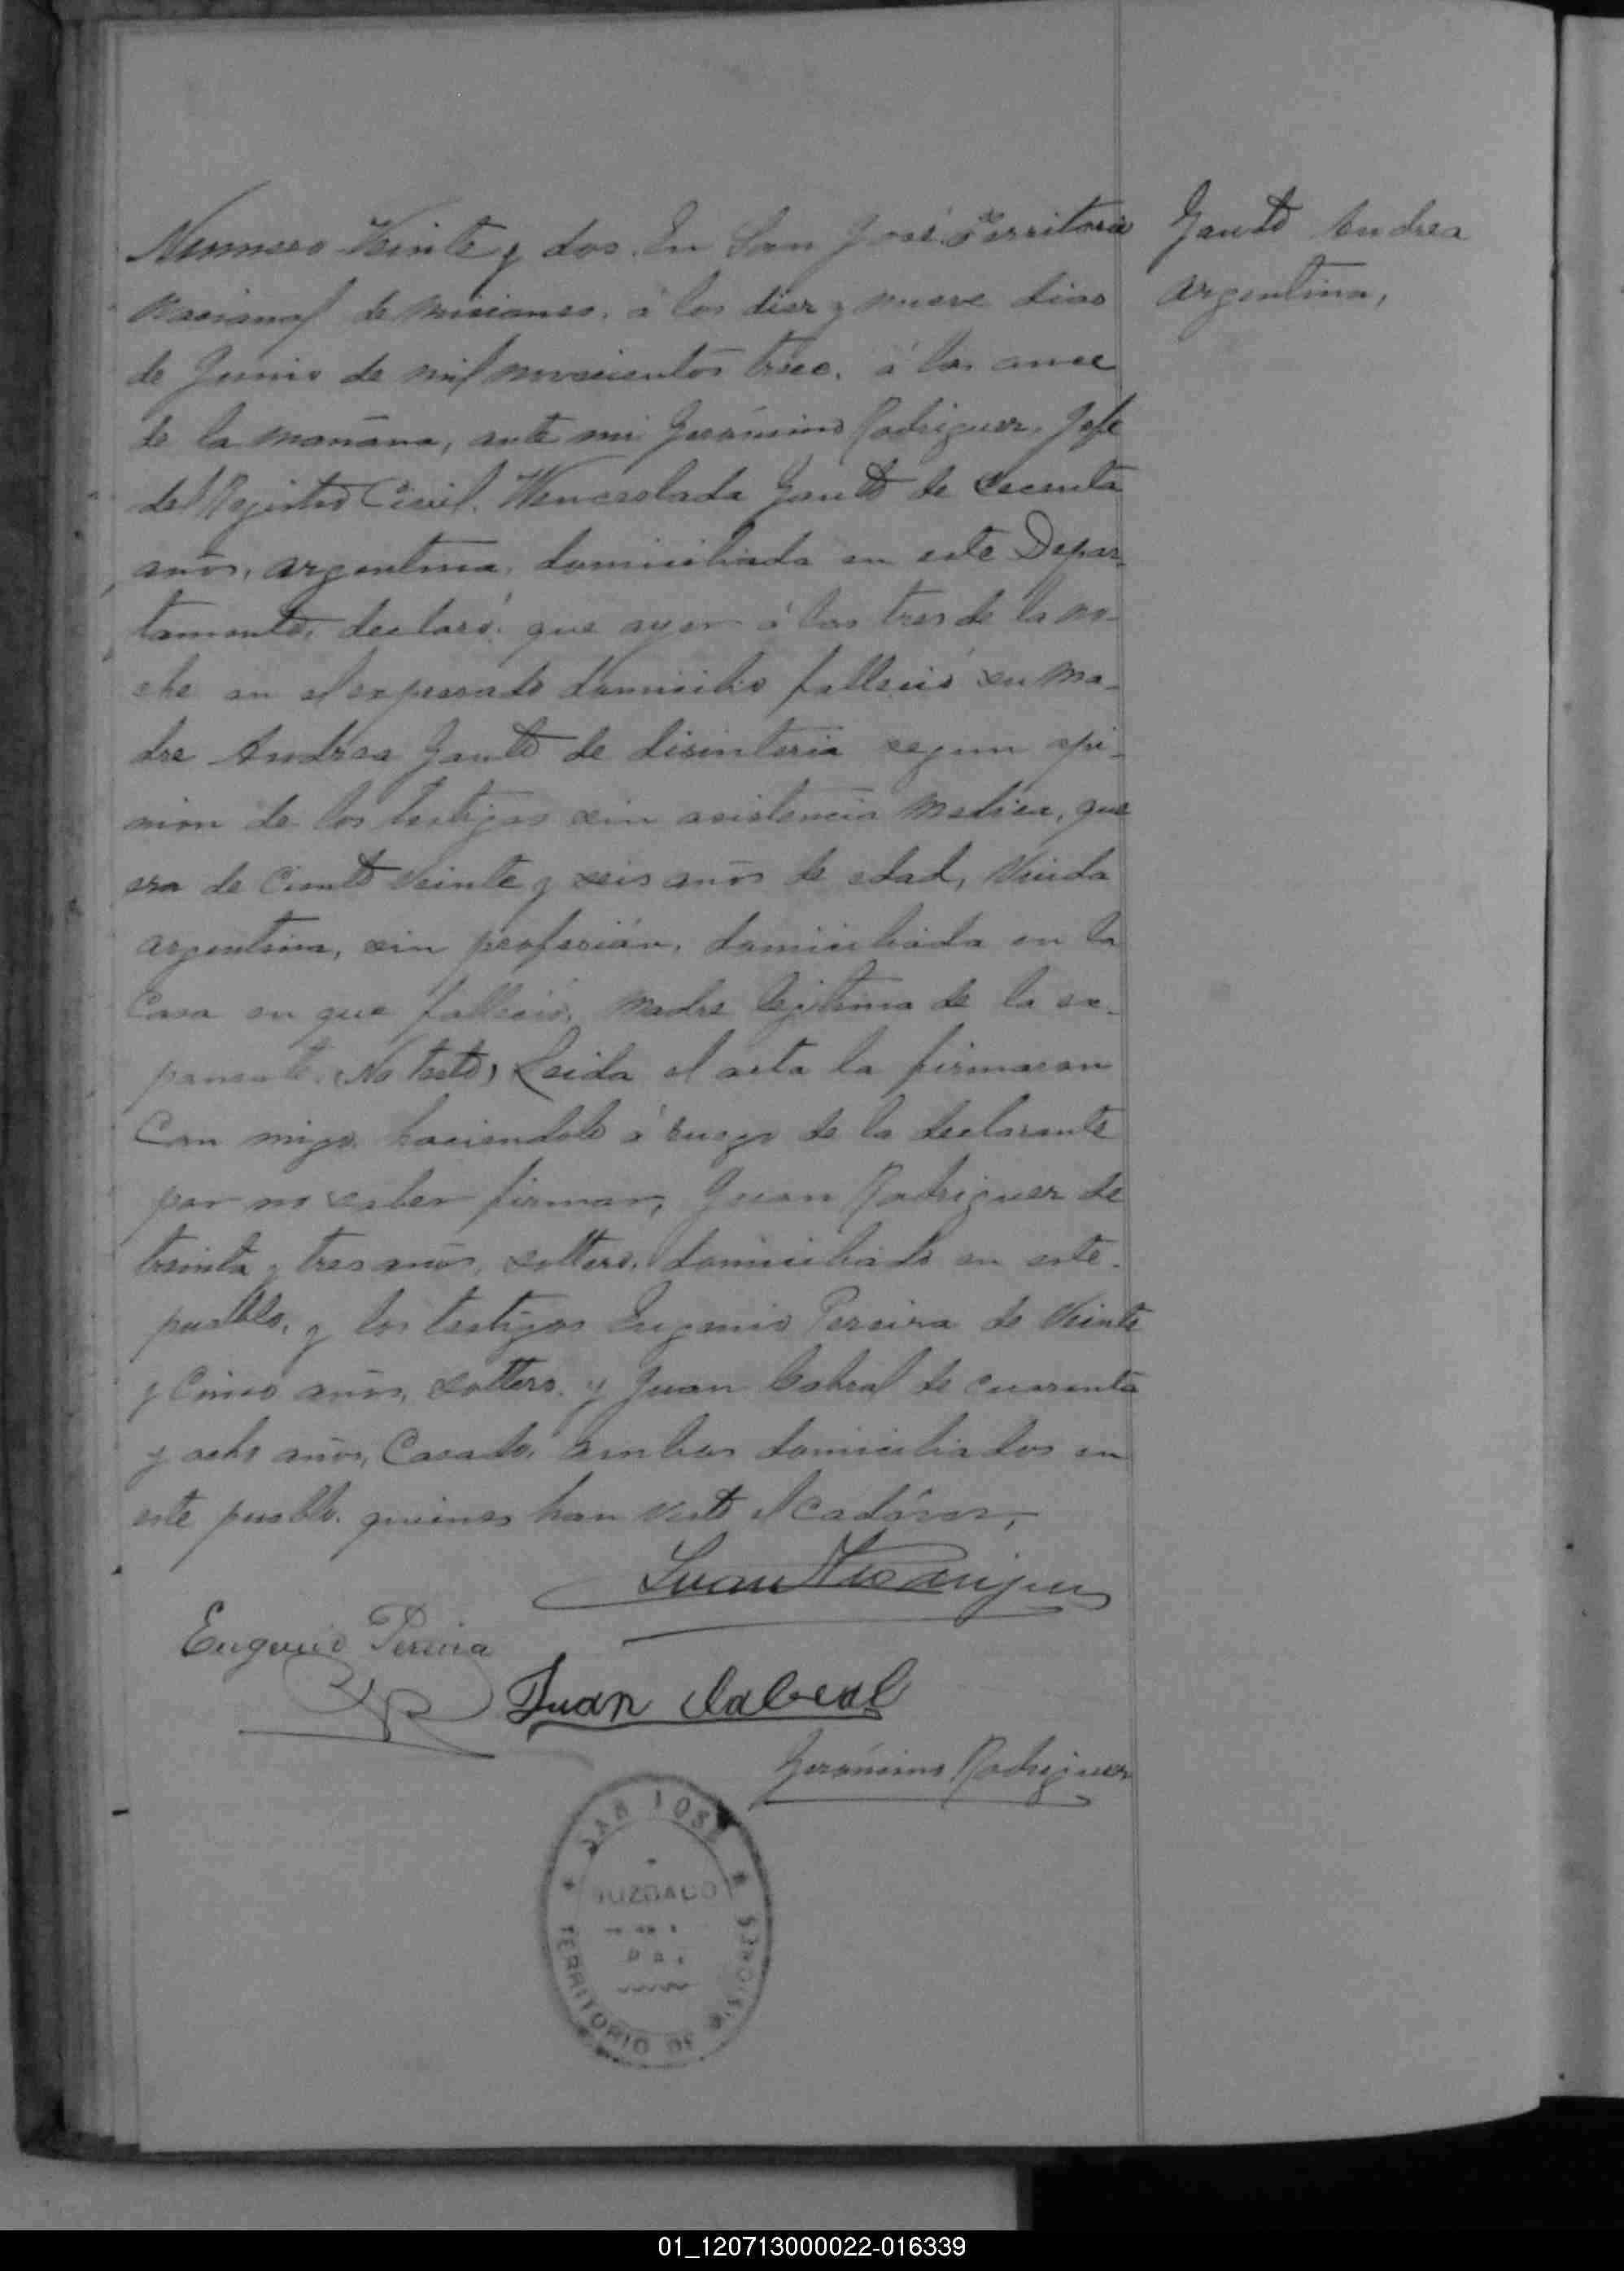 Numero Veinte y dos. En San José Territorio
Nacional de Misiones, a los diez y nueve dias
de Junio de mil novecientos trece, á las once
de la mañana, ante mi Gerónimo Rodriguez, Jefe
del Rejistro Civil, Wenceslada Gauto de secenta
años, argentina, domiciliada en este Depar-
tamento, declaró: que ayer á las tres de la no-
che en el expresado domicilio falleció su ma-
dre Andrea Gauto de disinteria segun opi-
nion de los testigos sin asistencia medica, que
era de Ciento veinte y seis años de edad, Viuda
argentina, sin profesión, domiciliada en la
Casa en que falleció, madre lejitima de la ex-
ponente. No testó, Leida el acta la firmaron
Con migo haciendolo á ruego de la declarante
por no saber firmar, Juan Rodriguez de
treinta y tres años, soltero, domiciliado en este
pueblo, y los testigos Eugenio Pereira de Veinte
y Cinco años, soltero, y Juan Cabral de cuarenta
y ocho años, Casado, ambos domiciliados en
este pueblo, quienes han visto el cadáver,
Gauto Andrea
argentina,
Juan Rodriguez
Eugenio Pereira
Juan Cabral
Gerónimo Rodriguez
SAN JOSE
JUZGADO
DE
TERRITORIO DE MISIONES
01_120713000022-016339